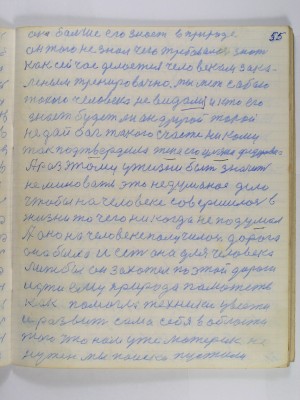 55
она больше его знает в природе
он того не знал чего требовалося знать
как сейчас делается человеком зака-
леным тренировочно. мы нет сабого
такого человека не видали и кто его
знает будет ли он другой такой
не дай бог такого счастя ни кому
так подтвердила
А раз этому у жизни быть значит
не миновать это не думаное дело
чтобы на человеке совершилося в
жизни то чего никогда не подумал
А оно на человеке получилося дорога
она была и есть она для человека
лиж бы он захотел по этой дороги
идти ему природа
как помогла техники
и развить сама себя в область
того что наш уже материк не
нужен мы поиски пустили